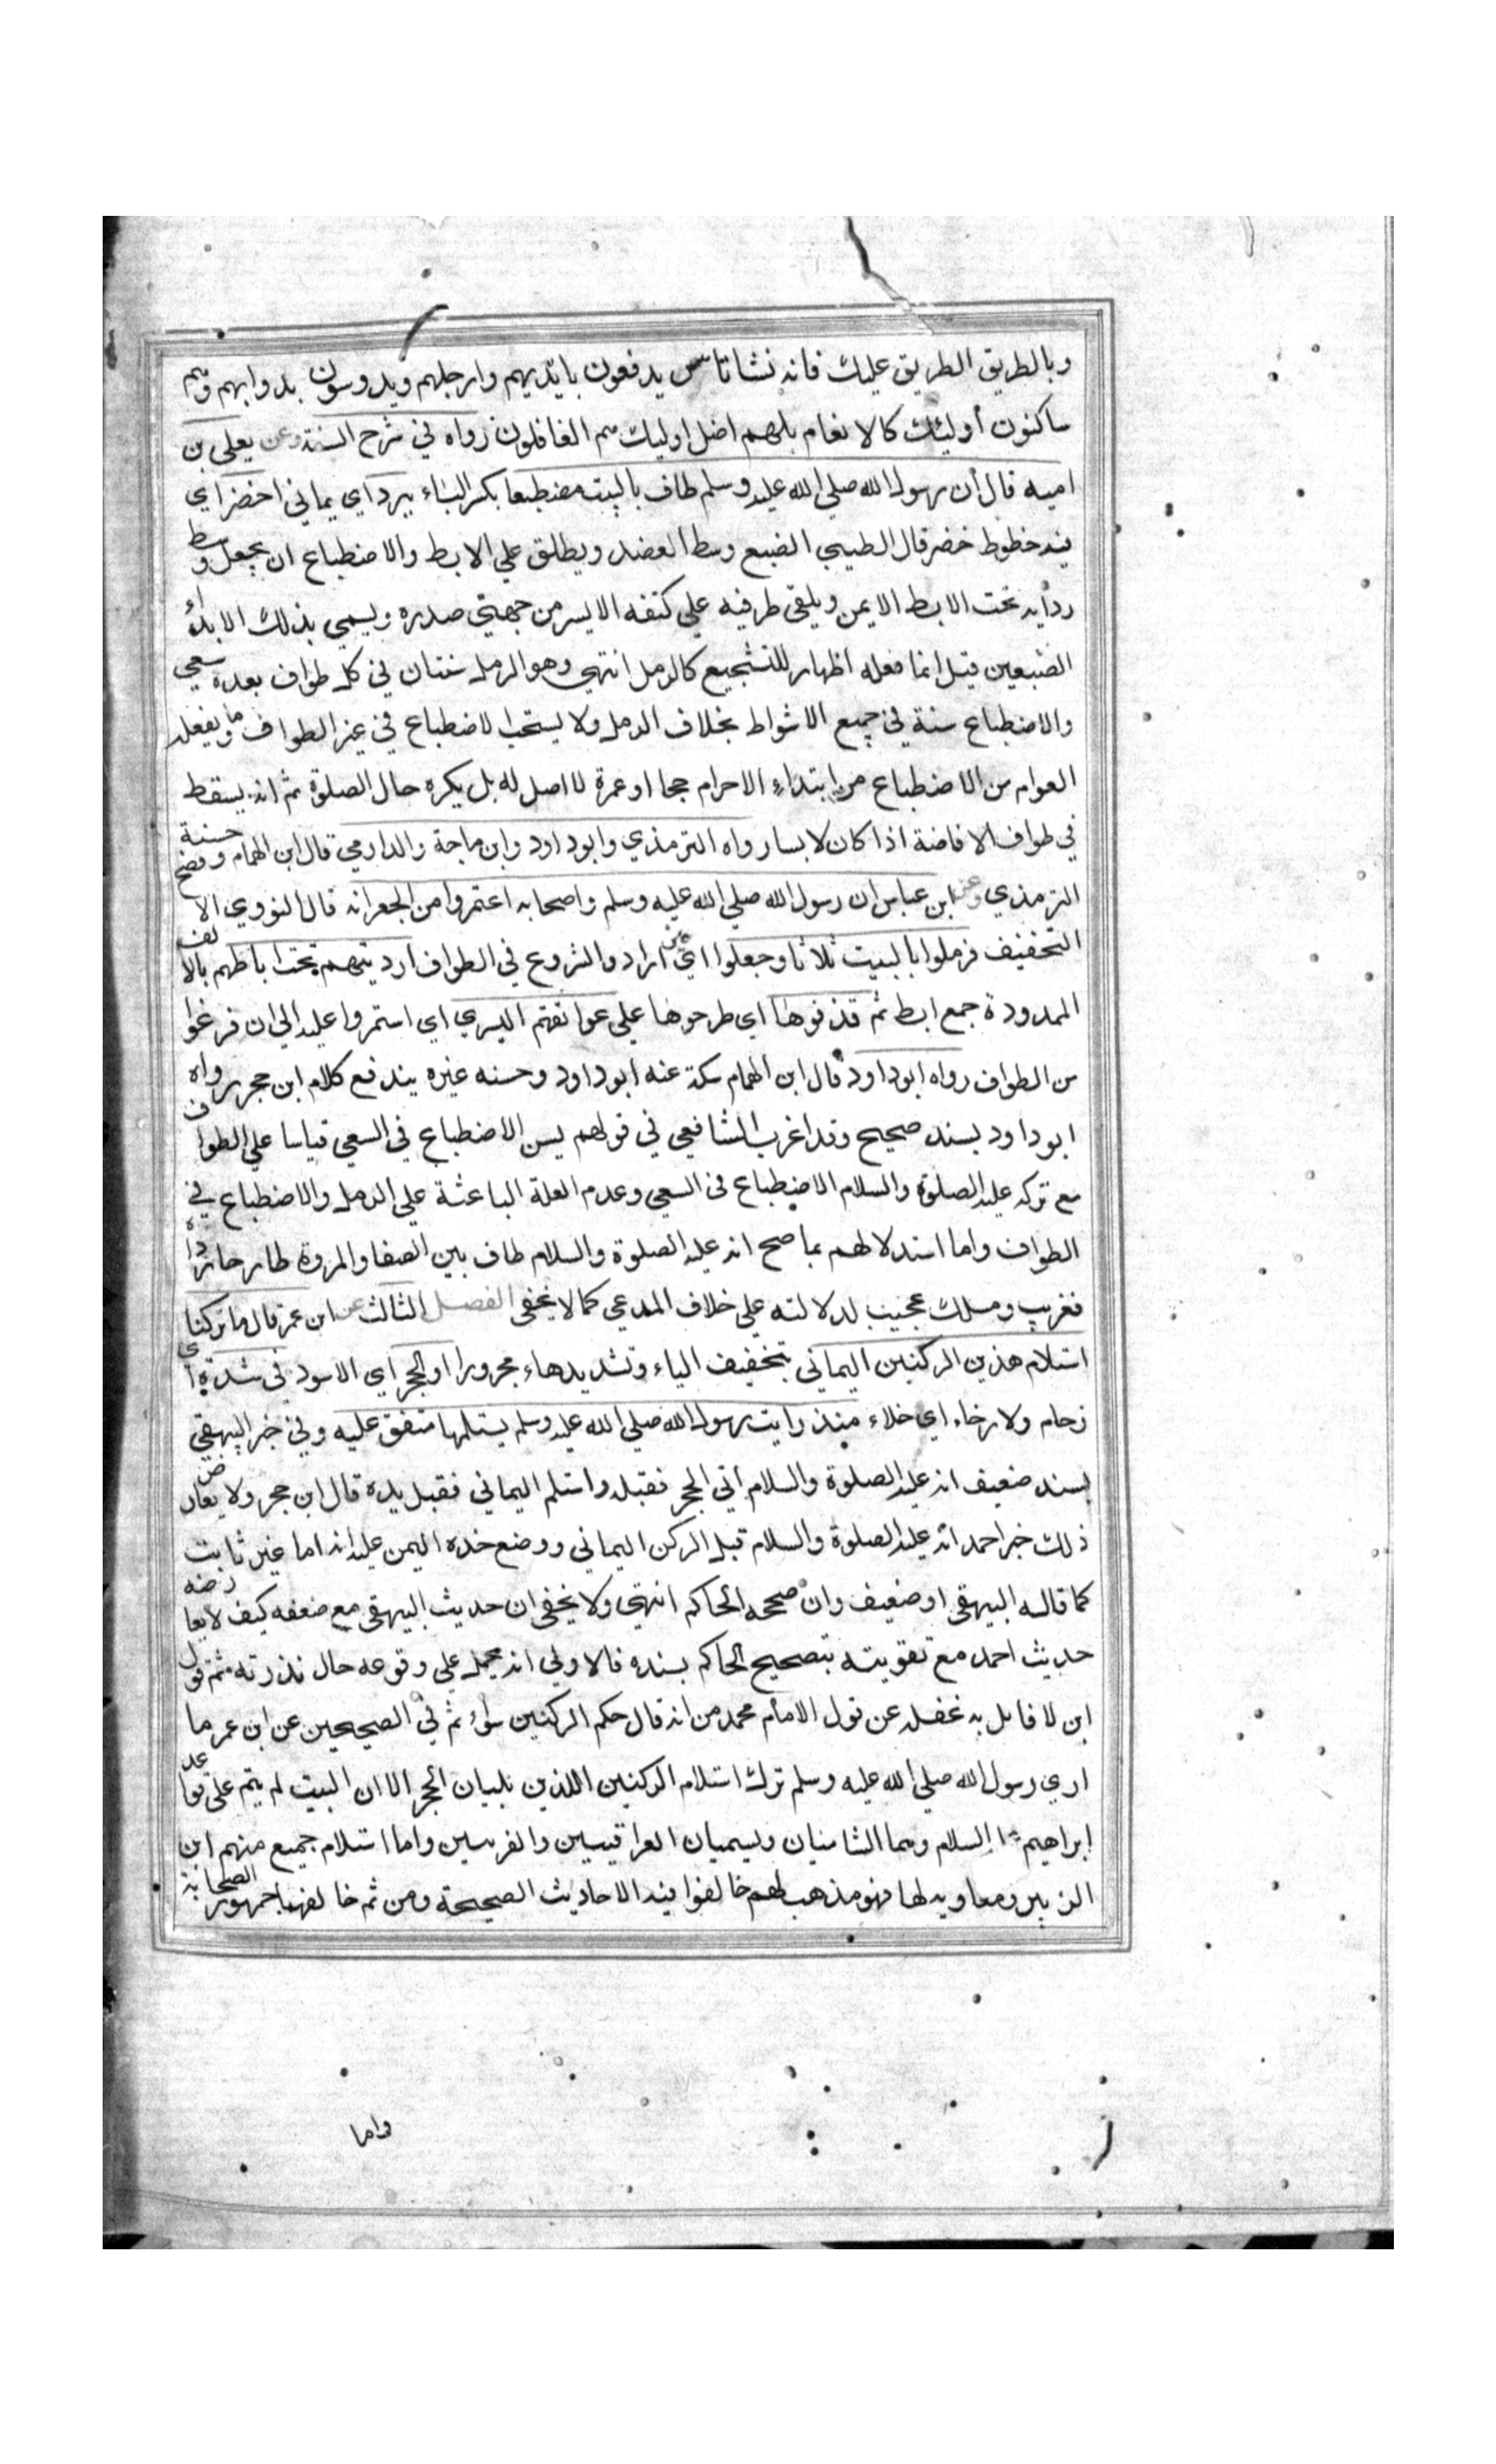 وبالطريق الطريق عليك فانه نشاناس يدفعون بايديهم وارجلهم ويدوسون بدوابهم وهم
ساكنون أوليك كالانعام بلهم اضل اوليك هم الغافلون رواه في شرح السنة وعن يعلى بن
اميه قال أن رسول الله صلي الله عليه وسلم طاف بالبيت مضطبعا بكسر الباء ببرد اي يماني اخضر اي
فيه خطوط خضر قال الطيبي الضبع وسط العضد ويطلق علي الابط والاضطباع ان يجعل وسط
ردأيه تحت الابط الايمن ويلقى طرفيه علي كتفه الايسر من جهتي صدره ويسمي بذلك الابداء
الضبعين قيل انما فعله اظهار للتشجيع كالرمل انتهي وهو الرمل سنتان في كل طواف بعده سعي
والاضطباع سنة في جميع الاشواط بخلاف الرمل ولا يستحب الاضطباع في غير الطواف وما يفعله
العوام من الاضطباع من ابتداء الاحرام حجا او عمرة لا اصل له بل يكره حال الصلوة ثم انه يسقط
في طواف الافاضة اذا كان لابسا رواه الترمذي وابو داود وابن ماجة والدارمي قال ابن الهمام وصححه حسنة
الترمذي وعن ابن عباس ان رسول الله صلي الله عليه وسلم واصحابه اعتمروا من الجعرانه قال النووي الا
التخفيف فرملوا بالبيت ثلاثا وجعلوا اي حين ارادوا الشروع في الطواف ارديتهم تحت اباطهم بالالف
الممدودة جمع ابط ثم قذفوها اي طرحوها علي عواتقهم اليسري اي استمروا عليه الي ان فرغوا
من الطواف رواه ابو داود قال ابن الهمام سكت عنه ابو داود وحسنه غيره يندفع كلام ابن حجر رواه
ابو داود بسند صحيح وقد اغرب الشافعي في قولهم يسن الاضطباع في السعي قياسا علي الطواف
مع تركه عليه الصلوة والسلام الاضطباع في السعي وعدم العلة الباعثة علي الرمل والاضطباع في
الطواف واما استدلالهم بما صح انه عليه الصلوة والسلام طاف بين الصفا والمروة طارحا رداه
فغريب ومسلك عجيب لدلالته علي خلاف المدعي كما لا يخفي الفصل الثالث عن ابن عمر قال ما تركنا
استلام هذين الركنين اليماني بتخفيف الياء وتشديدها مجرورا او الحجر اي الاسود في شدة اي
زحام ولا رخاء اي خلاء منذ رايت رسول الله صلي الله عليه وسلم يستلمها متفق عليه وفي خبر البيهقي
بسند ضعيف انه عليه الصلوة والسلام أتي الحجر فقبله واستلم اليماني فقبل يده قال ابن حجر ولا يعارض
ذلك خبر احمد انه عليه الصلوة والسلام قبل الركن اليماني ووضع خده اليمن عليه انه اما غير ثابت
كما قاله البيهقي او ضعيف وان صححه الحاكم انتهي ولا يخفي ان حديث البيهقي مع ضعفه كيف لا يعارضه
حديث احمد مع تقويته بتصحيح الحاكم بسنده فالاولي انه يحمل علي وقوعه حال ندرته ثم قول
ابن لا قايل به غفله عن قول الامام محمد من انه قال حكم الركنين سواء ثم في الصحيحين عن ابن عمر ما
اري رسول الله صلي الله عليه وسلم ترك استلام الركنين اللذين يليان الحجر الا ان البيت لم يتم علي قواعد
ابراهيم السلام وهما الشاميان ويسميان العراقيين والغربيين واما استلام جميع منهم ابن
الزبير ومعاويه لها فهو مذهب لهم خالفوا فيه الاحاديث الصحيحة ومن ثم خالفهما جمهور الصحابة
واما